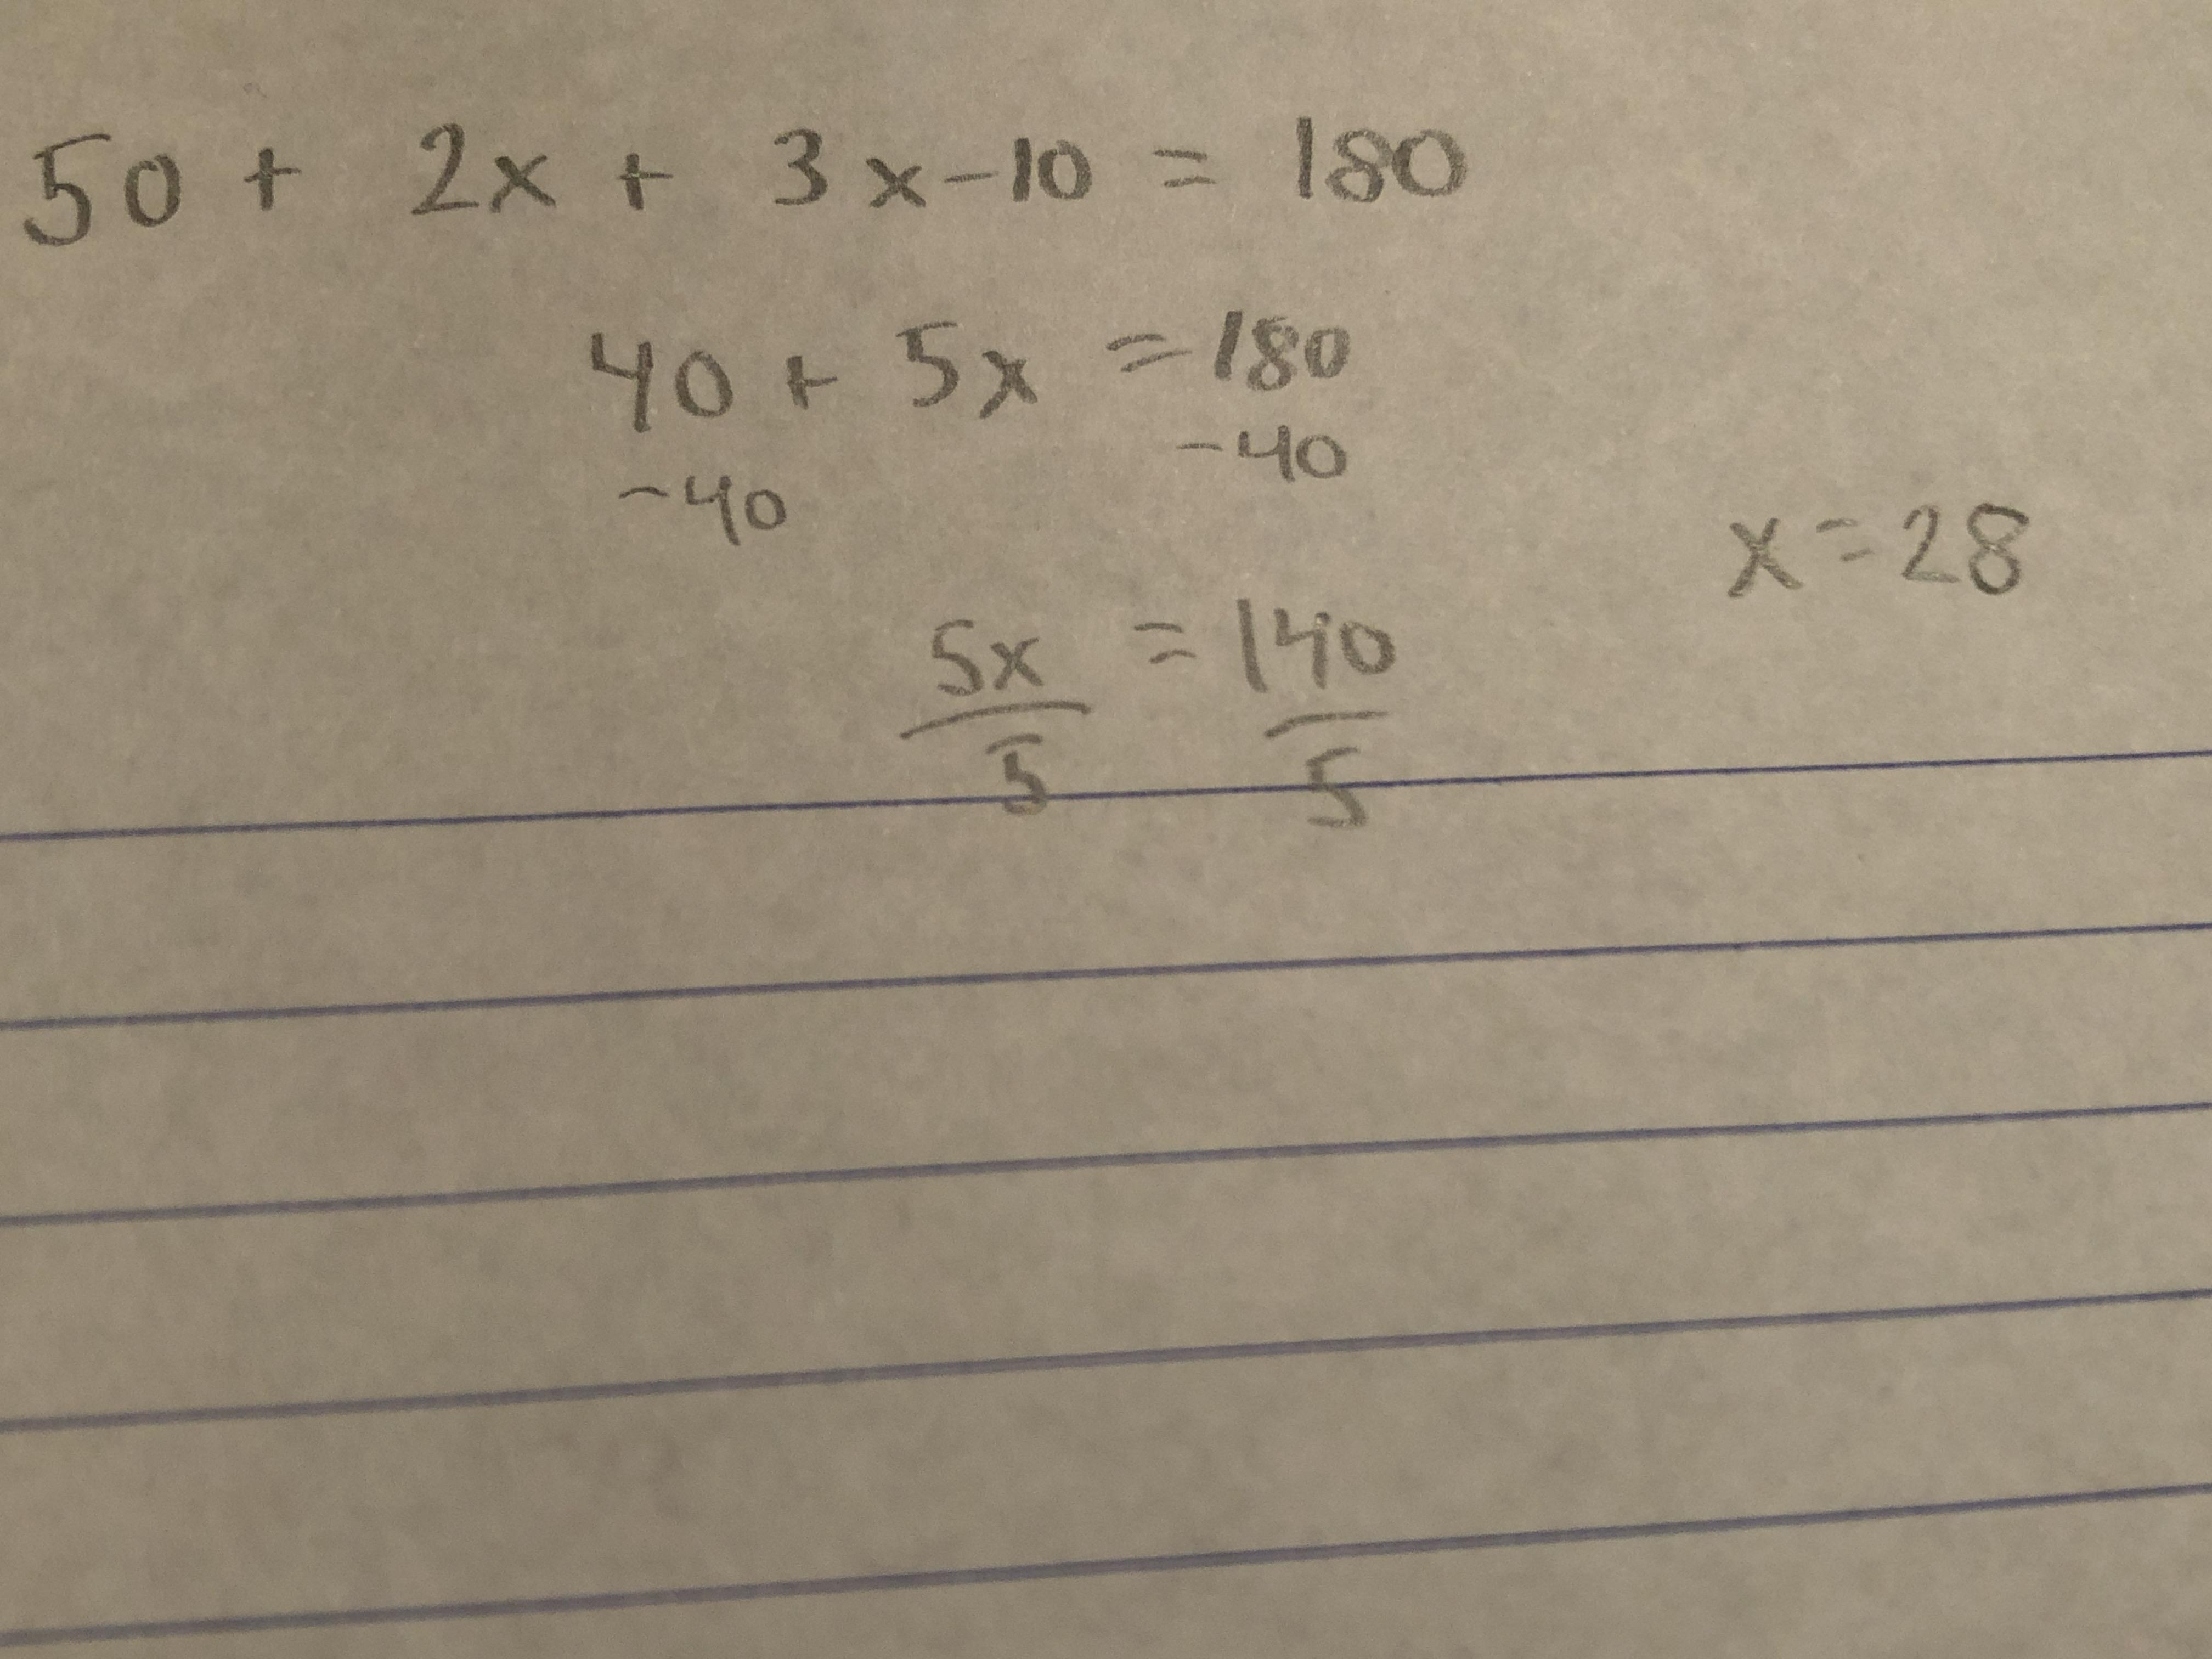 50 + 2x + 3x-10 = 180
40 + 5x = 180
-40 -40
x=28
5x = 140
5 5